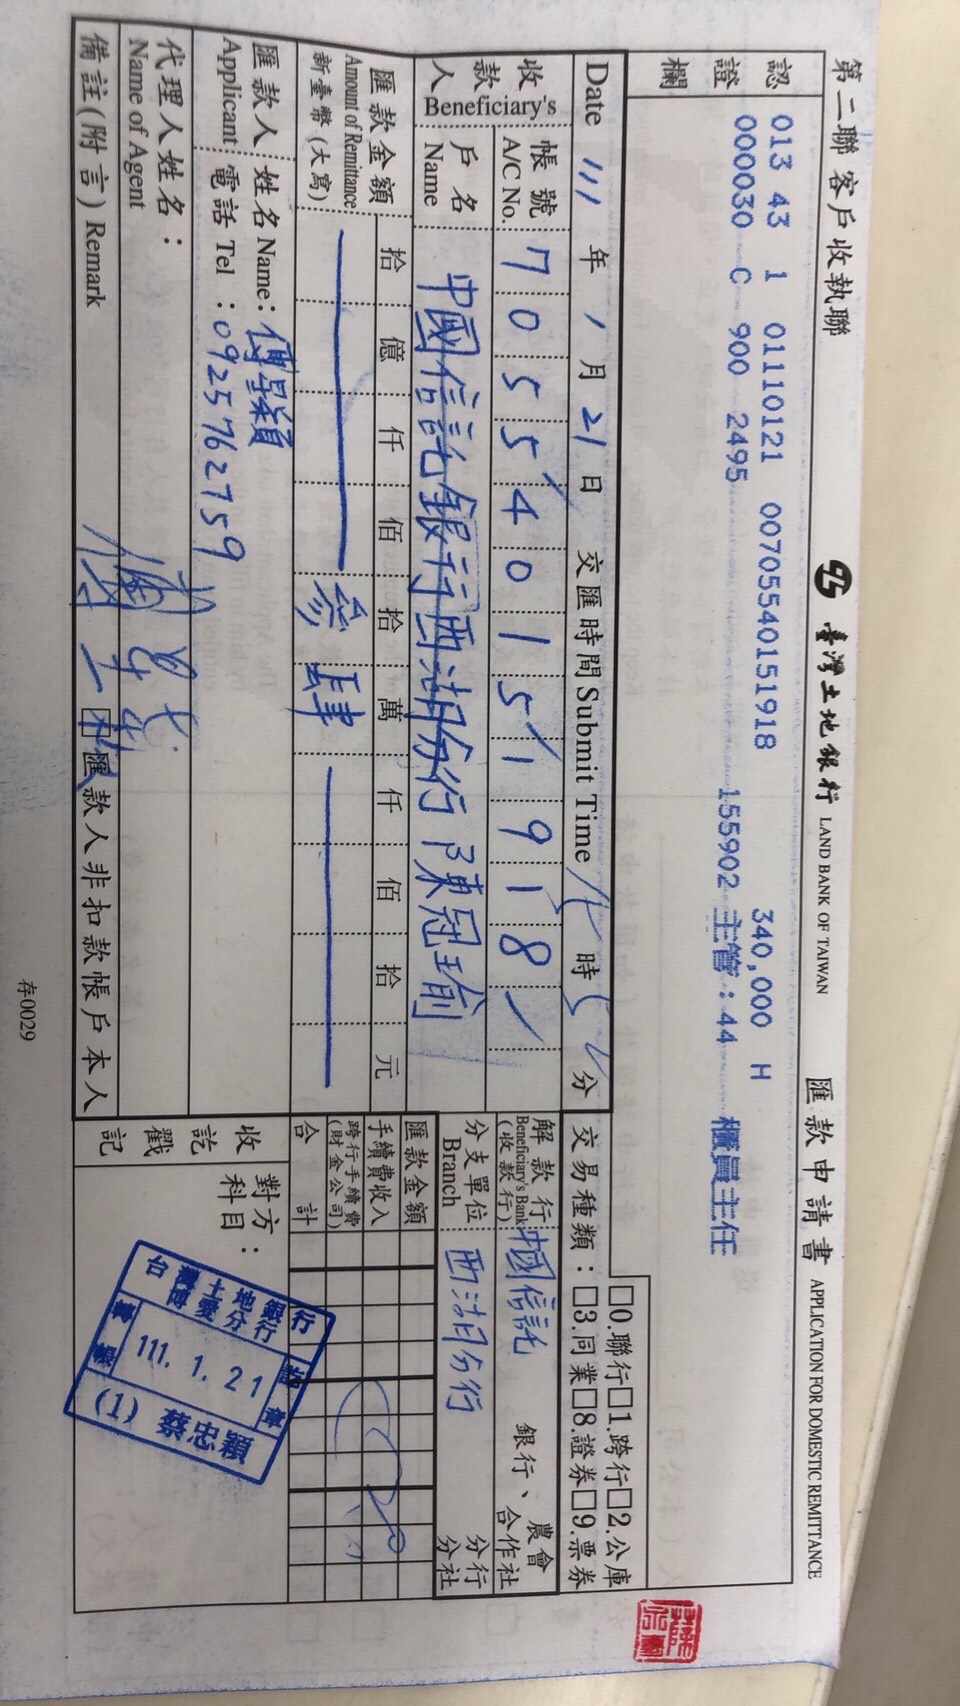 第二聯客戶收執聯
臺灣土地銀行 LAND BANK OF TAIWAN
匯款申請書 APPLICATION FOR DOMESTIC REMITTANCE
認證欄
013 43 1 01110121 00705540151918 340,000 H
000030 C 900 2495 155902 主管:44 櫃員主任
□0.聯行□1.跨行□2.公庫
交易種類:□3.同業□8.證券□9.票券
Date 111 年 1 月 21 日 交匯時間 Submit Time 時 分
收款人 Beneficiary's
帳號 A/C No. 705540151918
戶名 Name 中國信託銀行西湖分行 陳冠瑜
解款行 Beneficiary's Bank (收款行) 中國信託 銀行、農會 合作社
分支單位 Branch 西湖分行 分行 分社
匯款金額 Amount of Remittance 新臺幣(大寫)
拾 億 仟 佰 拾 萬 仟 佰 拾 元
參 肆
匯款金額
手續費收入
跨行手續費 (財金公司)
合計
匯款人 Applicant
姓名 Name:傅 穎
電話 Tel :0925762759
代理人姓名: Name of Agent
備註(附言) Remark
匯款人非扣款帳戶本人
收訖戳記
對方科目:
台灣土地銀行
博愛分行
轉帳
111. 1. 21
訖章
(1) 蔡忠穎
存0029